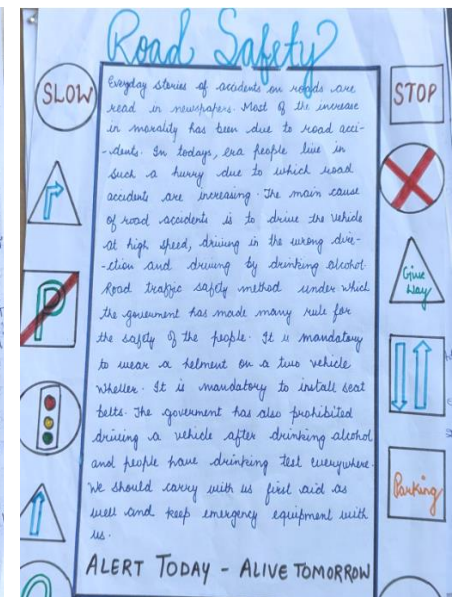 Road Safety
SLOW
STOP
Everyday stories of accidents on roads are
read in newspapers. Most of the increase
in morality has been due to road acci-
-dents. In todays, era people live in
such a hurry due to which road
accidents are increasing. The main cause
of road accidents is to drive the vehicle
at high speed, driving in the wrong dire-
-ction and driving by drinking alcohol.
Road traffic safety method under which
the government has made many rule for
the safety of the people. It is mandatory
to wear a helment on a two vehicle
wheller. It is mandatory to install seat
belts. The government has also prohibited
driving a vehicle after drinking alcohol
and people have drinking test everywhere.
We should carry with us first aid as
well and keep emergency equipment with
us.
Give
Way
P
Parking
ALERT TODAY - ALIVE TOMORROW